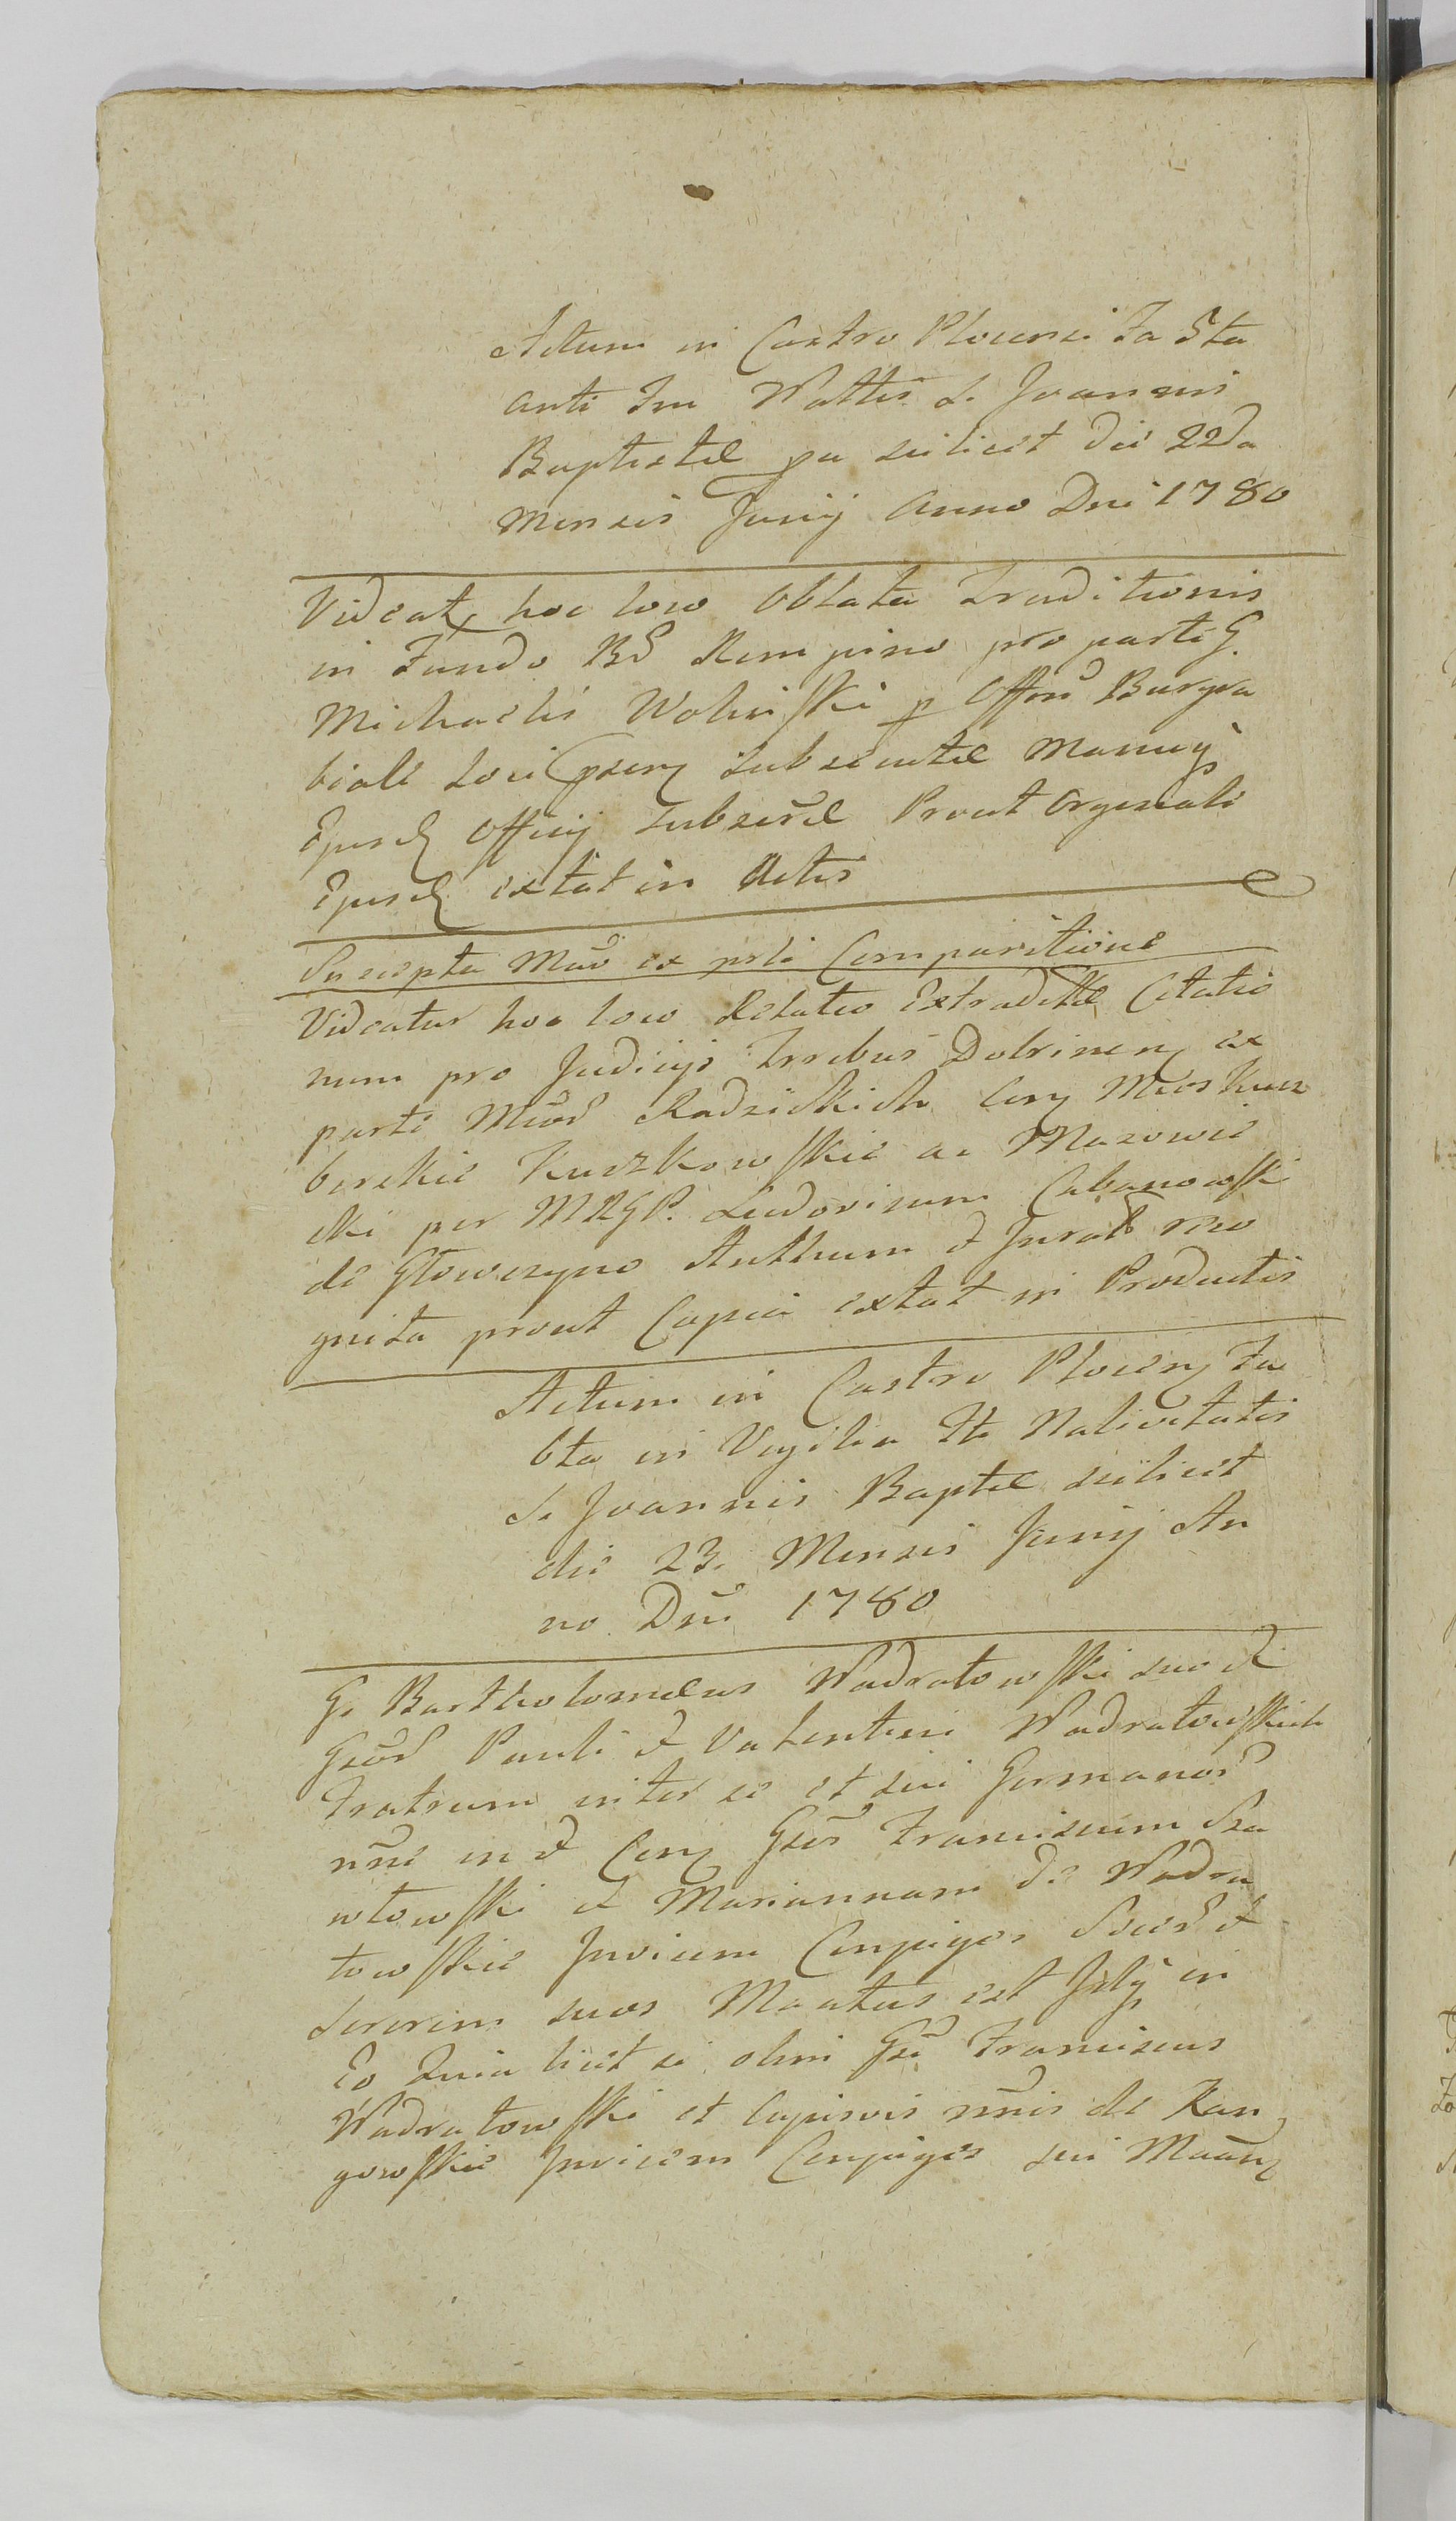 Actum in Castro Plocensi Fa 5ta
anti Fm Nattis S. Joannis
Baptistæ pa scilicet die 22da
Mensis Junij Anno Dni 1780
Videatr hoc loco Oblata Traditionis
in Fundo Rempino pro parte G.
Michaelis Wolinski p Offm Burgra
biale Loci subsecutæ Manuq
Ejusd Officij Subscræ Prout Orginale
Ejusd extat in Actis
Suscepta Mas ex prli Comparitione
Videatur hoc loco Relatio Extraditæ Citatio
num pro Judicijs Trrebus Dobrinen ex
parte Radzickich Con
Kuczkowskie ac Mazowie
cki per MRGP. Ludovicum Cabanowski
de Głowczyno Authum et Jurat reco
gnita prout Copia extat in Productis
Actum in Castro Plocen Fa
6ta in Vigilia Fti Nativitatis
S. Joannis Baptæ scilicet
die 23. Mensis Junij An
no Dni 1780
G. Bartholomæus Nadratowski suo et
Gsor Pauli et Valentini Nadratowskich
Fratrum inter se et sui Germanor
nne in et Con Gsos Franciscum Sza
włowski et Mariannam de Nadra
towskie Invicem Conjuges et
Sororem suos Mtatus est Jd in
Eo Quia licet si olim Franciscus
Nadratowski et cupivis nnis de Kan
gowskie Invicem Conjuges sui